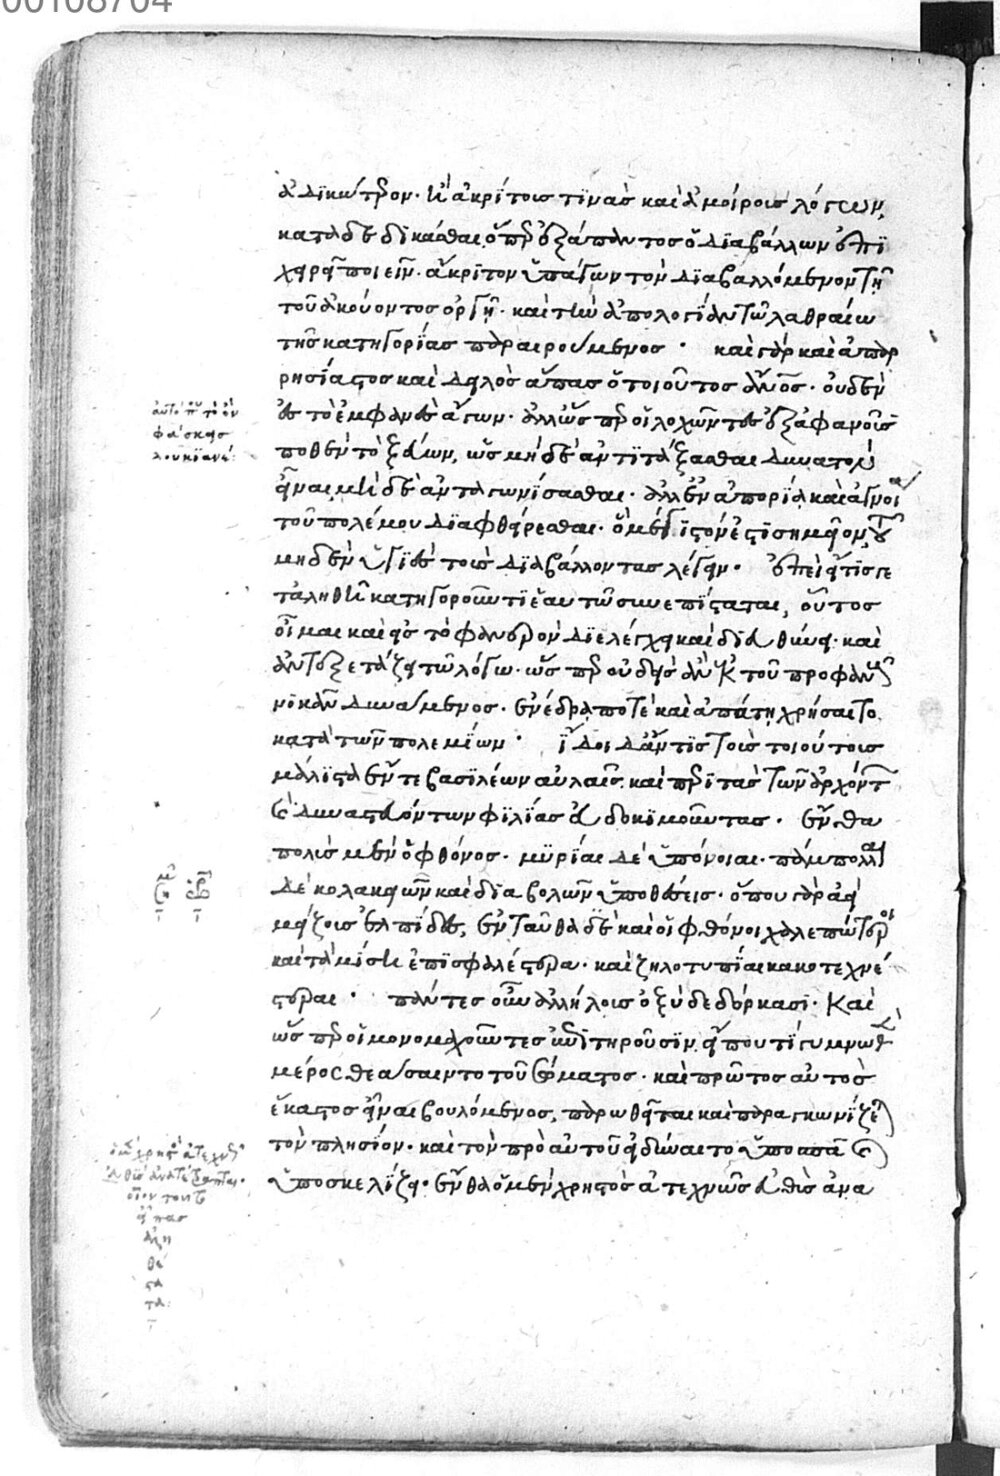 00108704
ἀδικώτερον. ἢ ἀκρίτοις τινὰς καὶ ἀμοίροις λόγων,
καταδεδικάσθαι. ὅπερ ἐξάπαντος ὁ διαβάλλων ἐπι
χειρεῖ ποιεῖν. ἄκριτον ὑπάγων τὸν διαβαλλόμενον τῇ
τοῦ ἀκούοντος ὀργῇ. καὶ τὴν ἀπολογίαν τῷ λαθραίω
τῆς κατηγορίας παραιρούμενος. καὶ γὰρ καὶ ἀπαρ
ρησίαστος καὶ δειλὸς ἅπας ὁ τοιοῦτος ἄνος. οὐδὲν
ἐς τὸ ἐμφανὲς ἄγων. ἀλλ' ὥσπερ οἱ λοχῶντες ἐξ ἀφανοῦς
ποθὲν τοξεύων, ὡς μηδὲ ἀντιτάξασθαι δυνατὸν
εἶναι μὴ δὲ ἀνταγωνίσασθαι. ἀλλ' ἐν ἀπορία καὶ ἀγνοία
τοῦ πολέμου διαφθείρεσθαι. ὃ μέγιστόν ἐστι σημεῖον τοῦ
μηδὲν ὑγιὲς τοὺς διαβάλλοντας λέγειν. ἐπεὶ εἴ τίς γε
τἀληθῆ κατηγοροῦντι ἑαυτῷ συνεπίσταται, οὗτος
οἶμαι καὶ εἰς τὸ φανερὸν διελέγχει καὶ διευθύνει. καὶ
ἀντεξετάζει τῷ λόγω. ὥσπερ οὐδεὶς ἂν ἐκ τοῦ προφανοῦς
νικᾶν δυνάμενος. ἐνέδρα ποτὲ καὶ ἀπάτη χρήσαιτο
κατὰ τῶν πολεμίων. ἴδοι δ' ἄν τις τοὺς τοιούτους
μάλιστα ἔν τε βασιλέων αὐλαῖς. καὶ περὶ τὰς τῶν ἀρχόντων
καὶ δυναστευόντων φιλίας εὐδοκιμοῦντας. ἔνθα
πολὺς μὲν ὁ φθόνος. μυρίαι δὲ ὑπόνοιαι. πάμπολλαι
δὲ κολακειῶν καὶ διαβολῶν ὑποθέσεις. ὅπου γὰρ ἀεὶ
μείζους ἐλπίδες, ἐνταῦθα δὲ καὶ οἱ φθόνοι χαλεπώτεροι
καὶ τὰ μίση ἐπισφαλέστερα. καὶ ζηλοτυπίαι κακοτεχνέ
στεραι. πάντες οὖν ἀλλήλοις ὀξὺ δεδόρκασι. καὶ
ὥσπερ οἱ μονομαχοῦντες ἐπιτηροῦσιν, εἴ που τὶ γυμνωθὲν
μέρος θεάσαιντο τοῦ σώματος. καὶ πρῶτος αὐτὸς
ἕκαστος εἶναι βουλόμενος, παρωθεῖται καὶ παραγκωνίζεται
τὸν πλησίον. καὶ τὸν πρὸ αὐτοῦ εἰ δύναιτο ὑποσπᾶ καὶ
ὑποσκελίζει. ἔνθα ὁ μὲν χρηστὸς ἀτεχνῶς εὐθὺς ἀνα
φάσκεις
λουκιανέ:
ὁ μὲν χρηστὸς ἀτεχνῶς
εὐθὺς ἀνατέτραπται.